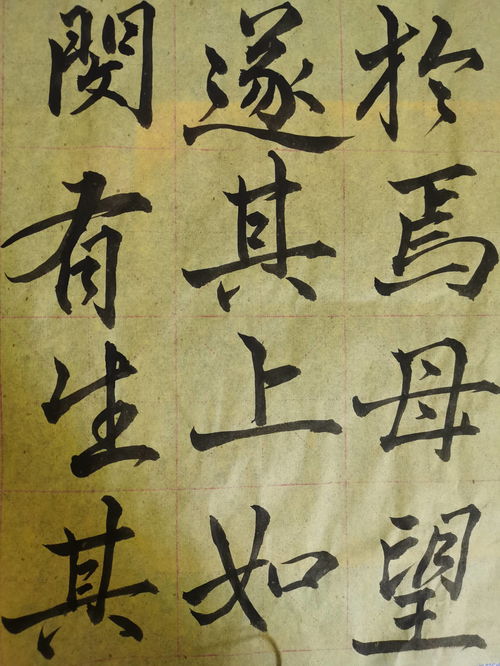 於焉母望
遂其上如
閔有生其